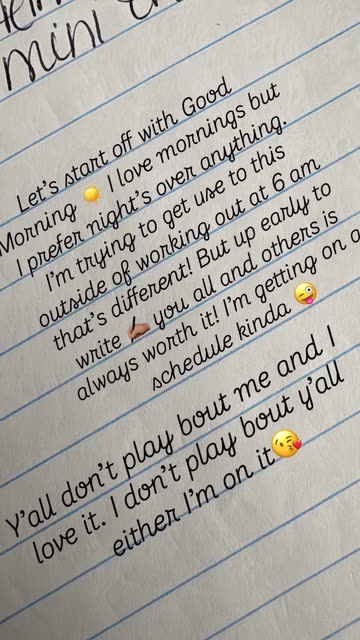 mini
Let's start off with Good
Morning ☀️ I love mornings but
I prefer night's over anything.
I'm trying to get use to this
outside of working out at 6 am
that's different! But up early to
write ✍🏽 you all and others is
always worth it! I'm getting on a
schedule kinda 😜
Y'all don't play bout me and I
love it. I don't play bout y'all
either I'm on it😘